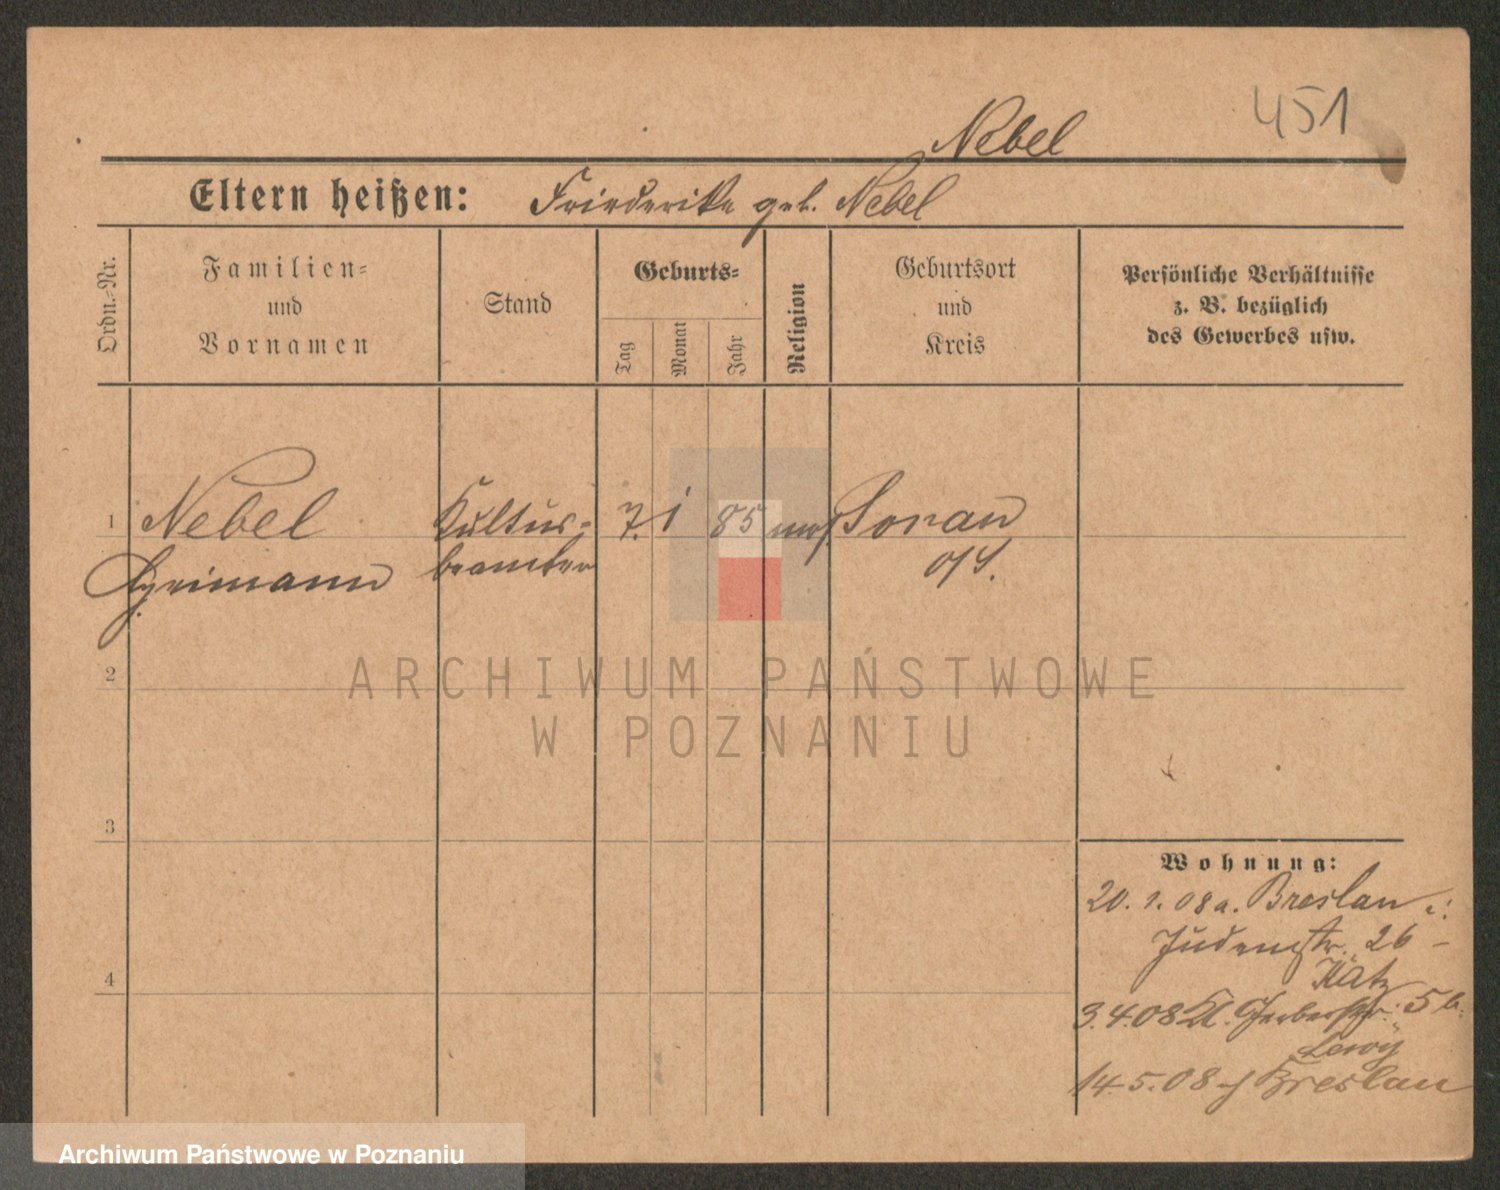 451
Nebel
Eltern heißen: Friederike geb. Nebel
Ordn.-Nr.
Familien-
und
Vornamen
Stand
Geburts-
Tag
Monat
Jahr
Religion
Geburtsort
und
Kreis
Persönliche Verhältnisse
z. B. bezüglich
des Gewerbes usw.
1 Nebel Kultus- 7. 1 85 mos. Sorau
Heimann beamter O/S.
2
ARCHIWUM PAŃSTWOWE
W POZNANIU
3
Wohnung:
20. 1. 08 a. Breslau i:
Judenstr. 26 –
Katz
4
3.4.08 Kl. Gerberstr. 5
Lewy
14.5.08 Breslau
Archiwum Państwowe w Poznaniu